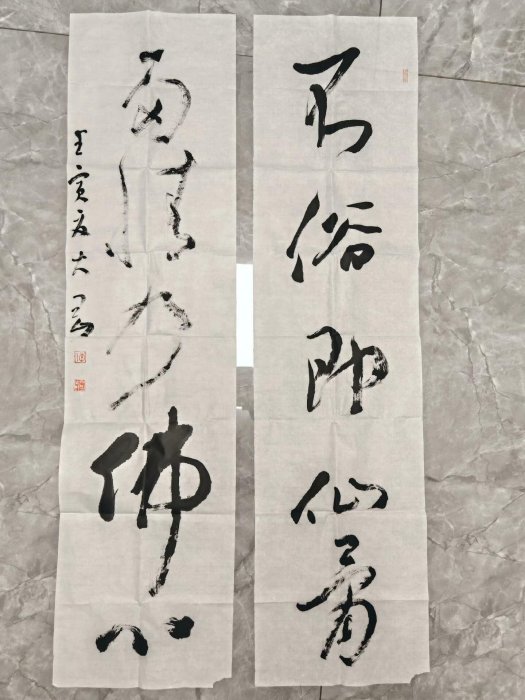 不俗即仙骨
多情乃佛心
壬寅夏大